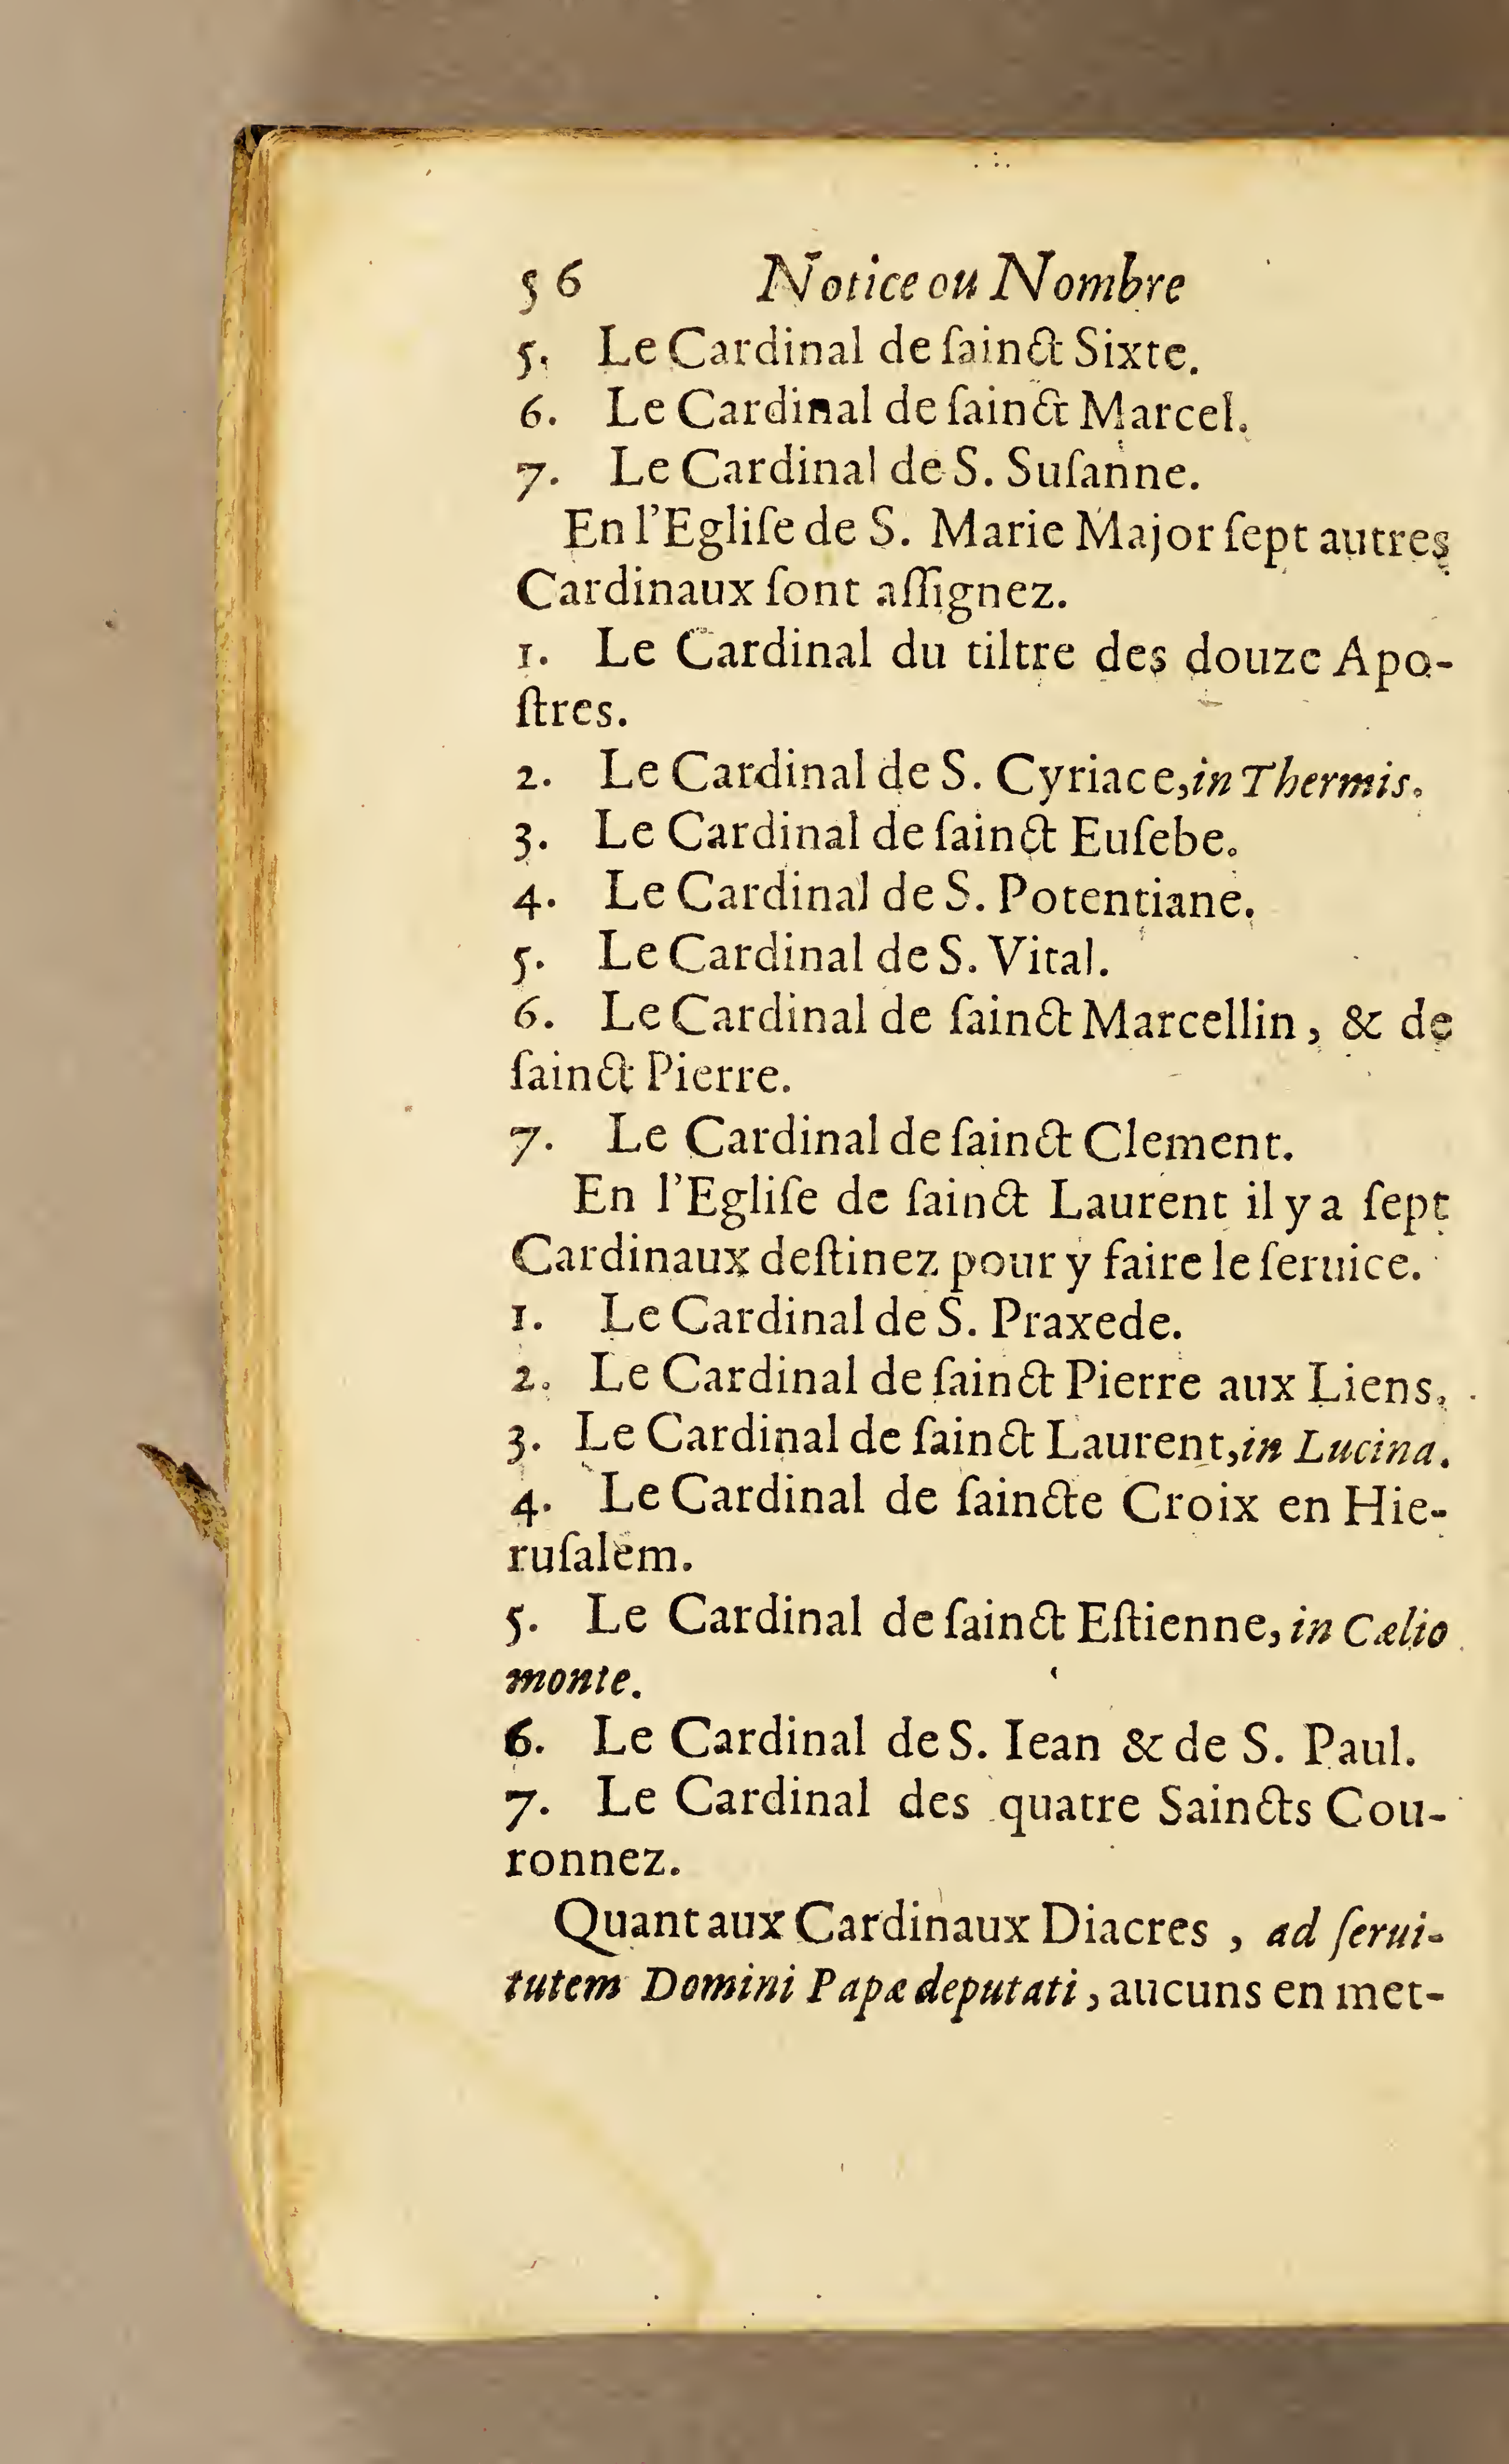 56 Notice ou Nombre
5. Le Cardinal de ſainct Sixte.
6. Le Cardinal de ſainct Marcel.
7. Le Cardinal de S. Suſanne.
En l'Egliſe de S. Marie Major ſept autres
Cardinaux ſont aſſignez.
1. Le Cardinal du tiltre des douze Apo-
ſtres.
2. Le Cardinal de S. Cyriace, in Thermis.
3. Le Cardinal de ſainct Euſebe.
4. Le Cardinal de S. Potentiane.
5. Le Cardinal de S. Vital.
6. Le Cardinal de ſainct Marcellin, & de
ſainct Pierre.
7. Le Cardinal de ſainct Clement.
En l'Egliſe de ſainct Laurent il y a ſept
Cardinaux deſtinez pour y faire le ſeruice.
1. Le Cardinal de S. Praxede.
2. Le Cardinal de ſainct Pierre aux Liens.
3. Le Cardinal de ſainct Laurent, in Lucina.
4. Le Cardinal de ſaincte Croix en Hie-
ruſalem.
5. Le Cardinal de ſainct Eſtienne, in Cælio
monte.
6. Le Cardinal de S. Iean & de S. Paul.
7. Le Cardinal des quatre Saincts Cou-
ronnez.
Quant aux Cardinaux Diacres, ad ſerui-
tutem Domini Papæ deputati, aucuns en met-